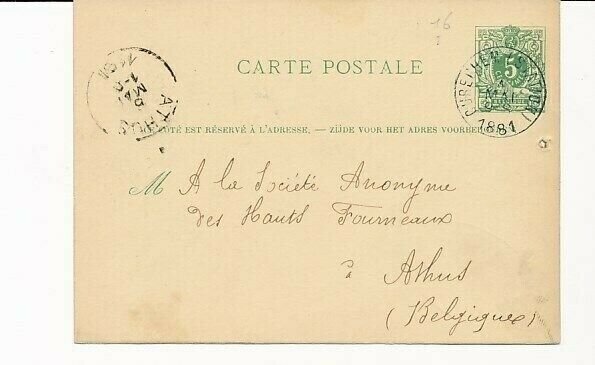 16
CARTE POSTALE
5
MAI
1881
ATHUS
MAI
CÔTÉ EST RÉSERVÉ À L'ADRESSE. — ZIJDE VOOR HET ADRES
M A la Société Anonyme
des Hauts Fourneaux
à
Athus
(Belgique)